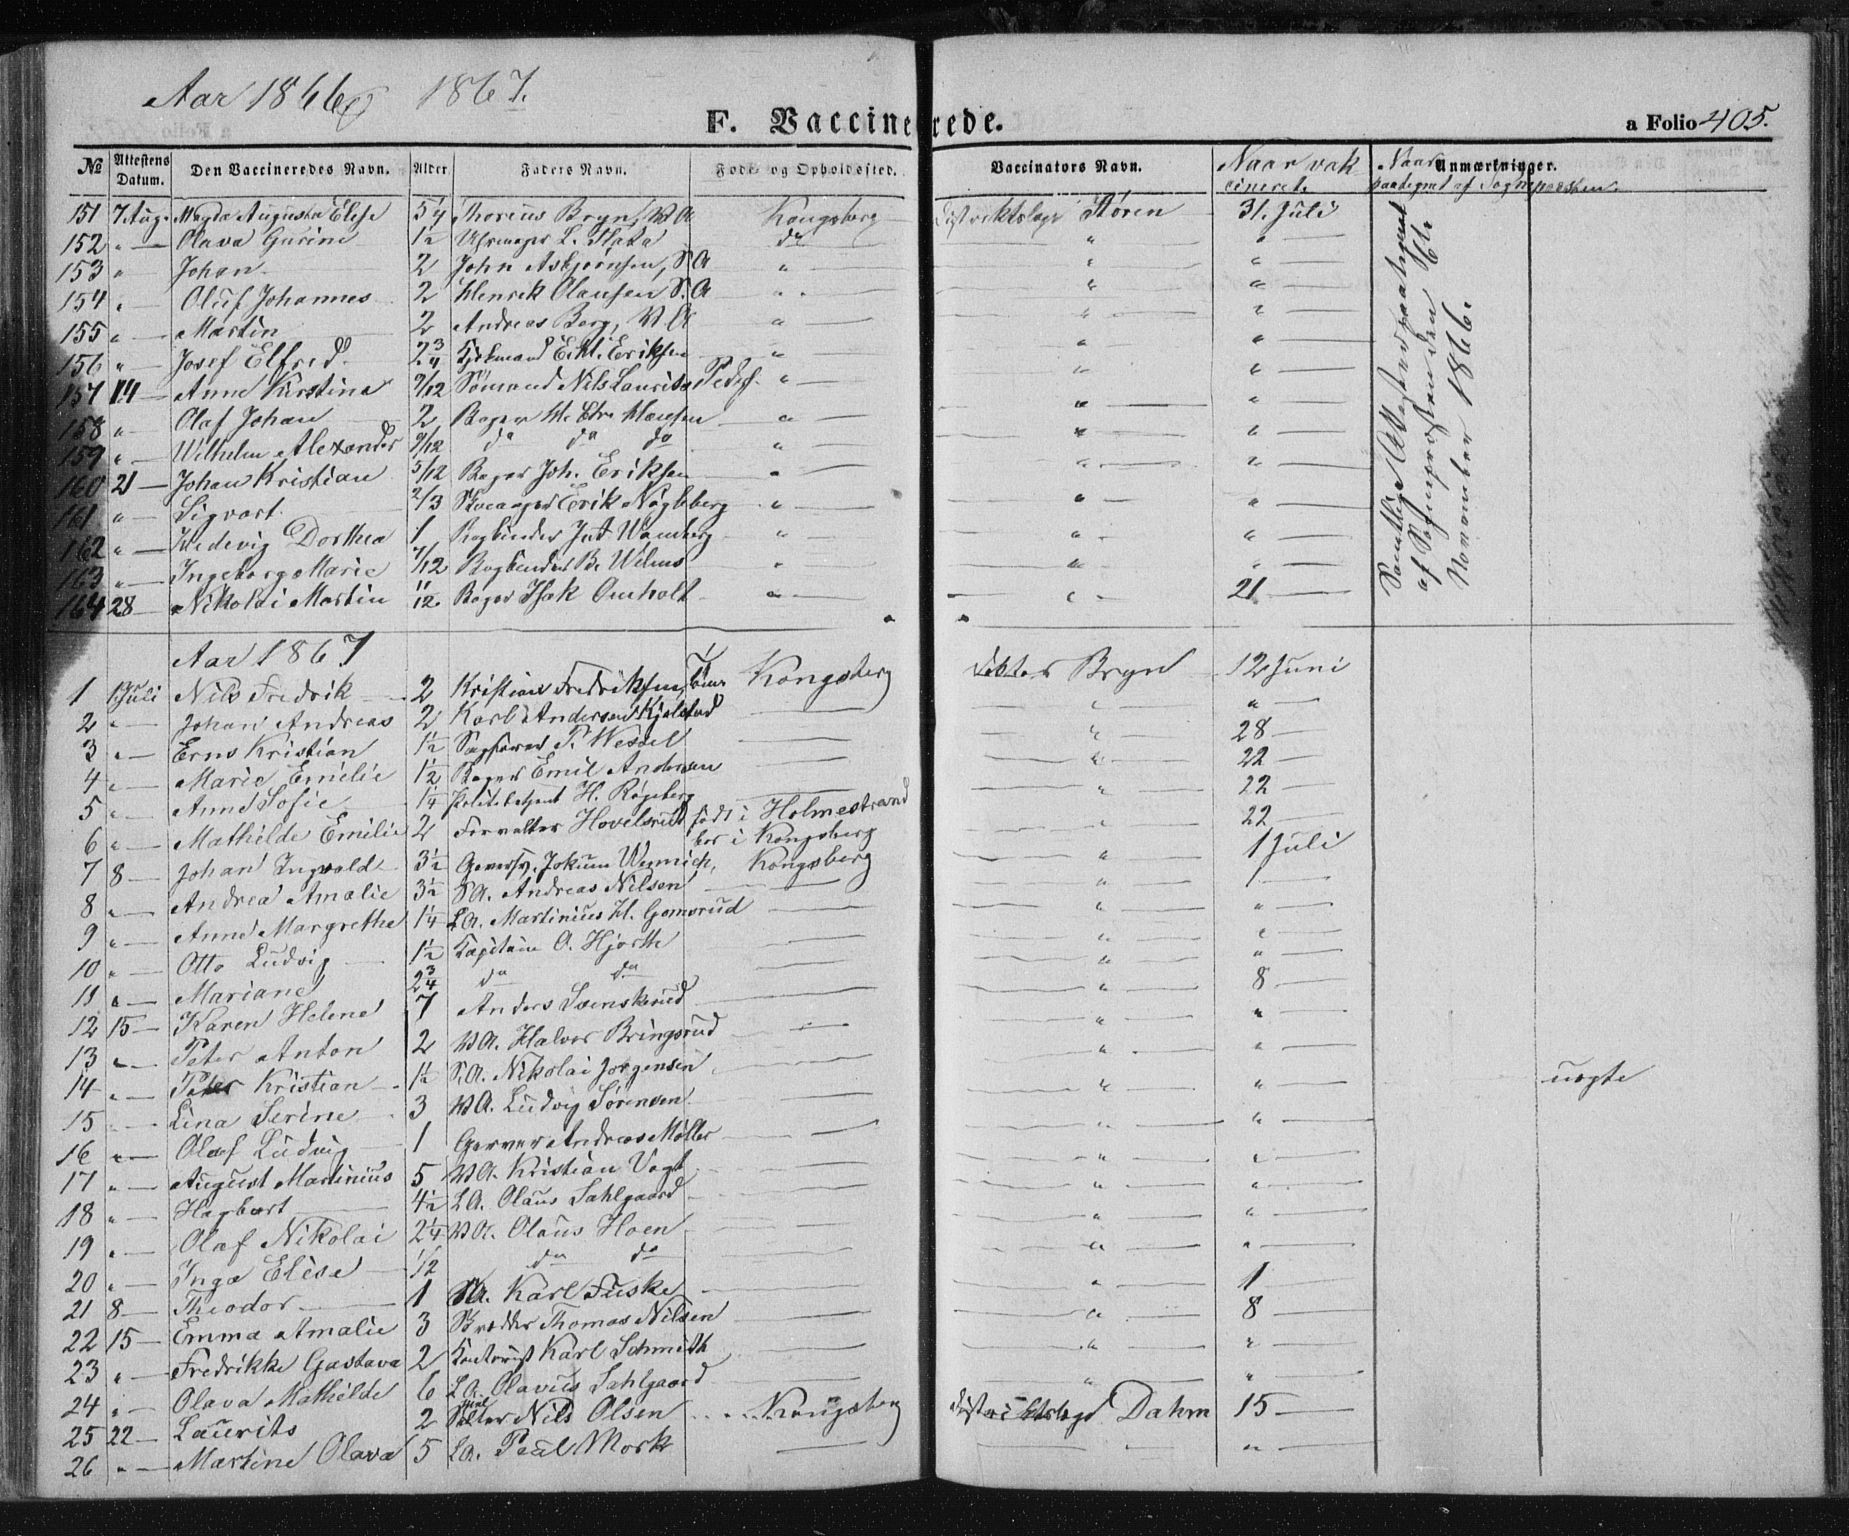 Aar 1866 & 1867.
F. Vaccinerede.
a Folio 405.
No Attestens Datum. Den Vaccineredes Navn. Alder Faders Navn. Føde og Opholdssted. Vaccinators Navn. Naar vakcineret. Naar paategnet af Sognepræsten. Anmærkninger.
151 7. Aug. Magda Augusta Elise 5/4 Thorvus Bryn, V.A. Kongsberg Distriktslæge Støren 31. Juli
152 " — Olava Gurine 1½ Uhrmager L. do " "
153 " Johan 2 John Asbjørnsen, S.A " " "
154 " Oluf Johannes 2 Henrik Olausen S.A " " "
155 " Martin 2 Andreas Berg, V.A " " "
156 " Josef Elfred 2¾ Eriksen " " "
157 14 — Anne Kirstine 9/12 Sømand Nils Laurits Peders. " " "
158 " Olaf Johan 2 Bager H. Chr. Hansen " " "
159 " Wilhelm Alexander 9/12 do do do " " "
160 21 — Johan Kristian 5/12 Bager Joh. Eriksen " " "
161 " — Sigvart 2/3 Erik Nøgleberg " " "
162 " — Hedevig Dorthea 1 Bogbinder Wamberg " " "
163 " — Ingeborg Marie 7/12 Bogbinder B. Wilms " " "
164 28 — Nikolai Martin 11/12 Bager Isak Omholt " " 21 —
Samtlige Attester paategnet
af Sognepræsten den 6te
November 1866.
Aar 1867
1 1 Juli Nils Fredrik 2 Kristian Fredriksen, Kongsberg Doktor Bryn 12 Juni
2 " — Johan Andreas 2 Karl Andersen Kjølstad — " "
3 " — Erns Kristian 1½ Sagfører P. Wessel — " 28 —
4 " — Marie Emilie 1½ Bager Emil Andersen — " 22 —
5 " — Anne Sofie 1¼ Politibetjent H. Røgeberg — " 22 —
6 " — Mathilde Emilie 2 Forvalter Hovelsrud født i Holmestrand bor i Kongsberg " 22 —
7 8 — Johan Ingvald 3½ Jokum Wennich, Kongsberg " 1 Juli
8 " — Andrea Amalie 3½ S.A. Andreas Nilsen — " " —
9 " — Anne Margrethe 1¼ L.A. Martinius H. Gomsrud — " "
10 " — Otto Ludvig 1½ Kapitain O. Hjorth — " "
11 " — Mariane 2¾ do do — " 8 —
12 15 — Karen Helene 7 Anders Svenskerud — " "
13 " — Peter Anton 2 V.A. Halvor Bringsrud — " "
14 " — Peter Kristian 1½ S.A. Nikolai Jørgensen — " " uægte
15 " Lina Serine 3 V.A. Ludvig Sørensen — " "
16 " — Olaf Ludvig 1 Garver Andreas Møller — " "
17 " — August Martinius 5 V.A. Kristian Vogt — " "
18 " — Hagbart 4½ L.A. Olaus Sahlgaard — " "
19 " — Olaf Nikolai 2¼ V.A. Olaus Hoen — " "
20 " — Inga Elise ½ do do — " 1 —
21 8 — Theodor 1 Karl Fuske — " 8 —
22 15 — Emma Amalie 3 Thomas Nilsen — " "
23 " — Fredrikke Gustava 2 Kontorist Karl Schmith — " "
24 " — Olava Mathilde 6 L.A. Olavus Sahlgaard — " "
25 22 — Laurits 2 Nils Olsen Kongsberg Distriktslæge Dahm 15 —
26 " — Martine Olava 5 L.A. Paul Mork — " "